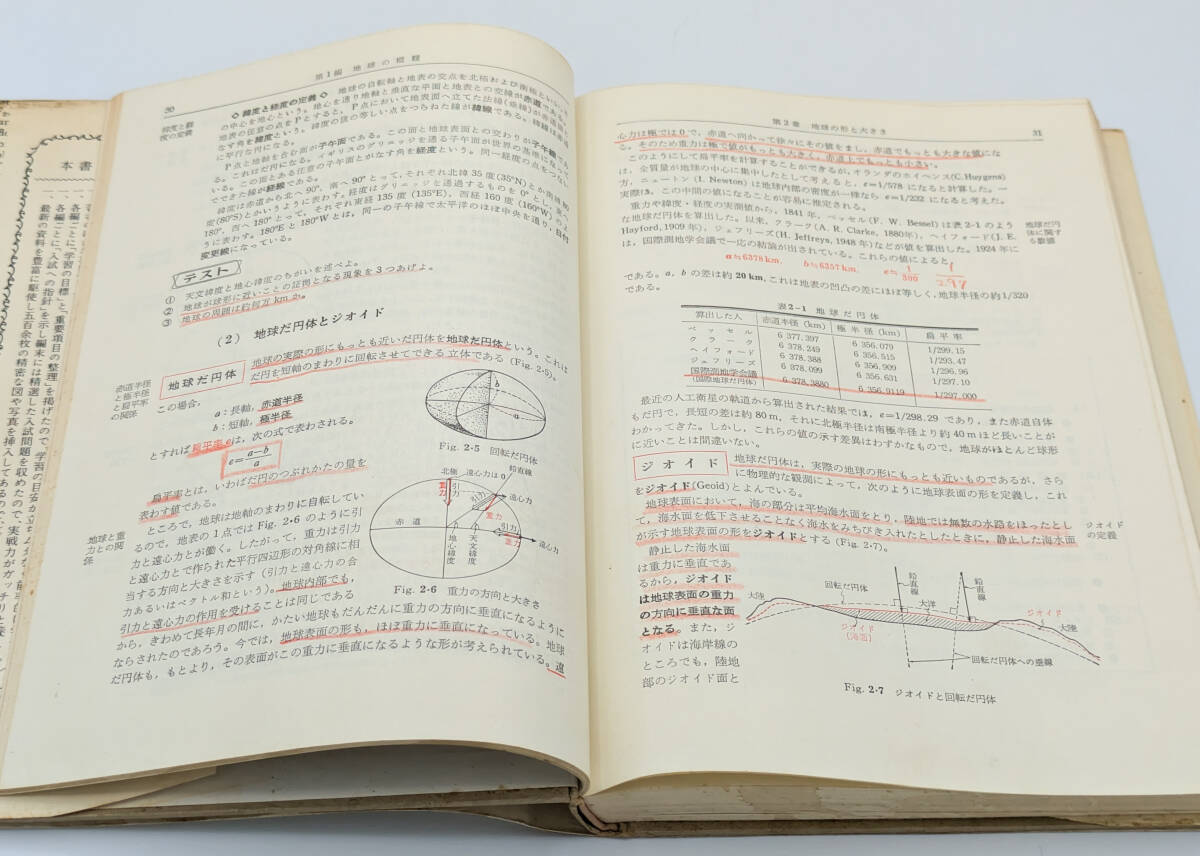 30
第1編 地球の概観
緯度と経
度の定義
◇ 緯度と経度の定義 ◇ 地球の自転軸と地表の交点を北極および南極といい
の中心を地心という。地心を通り地軸と垂直な平面と地表との交線が赤道である。
地表の任意の点をPとすると、P点において地表面へ立てた法線(垂線)が赤道面と
なす角を緯度という。緯度の値の等しい点をつらねた線が緯線である。緯線は赤道
に平行な円になる。
P点と地軸を含む面が子午面である。この面と地球表面との交わりが子午線であ
る。これはだ円になる。イギリスのグリニッジを通る子午面が世界の基準にな
いる。この面とある任意の子午面とがなす角を経度という。同一経度の点をつない
でできた線が経線である。
緯度は赤道から北へ90°、南へ90°とって、それぞれ北緯35度(35°N)とか南緯80
度(80°S)とかいうように表わす。経度はグリニッジを通過するものを0°とし、東へ
180°、西へ180°とって、それぞれ東経135度(135°E)、西経160度(160°W)のよ
うに表わす。180°Eと180°Wとは、同一の子午線で太平洋のほぼ中央を通り、日付
変更線になっている。
テスト
① 天文緯度と地心緯度のちがいを述べよ。
② 地球が球形に近いことの証拠となる現象を3つあげよ。
③ 地球の周囲は約何万kmか。
(2) 地球だ円体とジオイド
赤道半径
と極半径
と扁平率
の関係
地球だ円体
地球の実際の形にもっとも近いだ円体を地球だ円体という。これは
だ円を短軸のまわりに回転させてできる立体である (Fig. 2·5)。
この場合、
a:長軸,赤道半径
b:短軸,極半径
とすれば扁平率eは、次の式で表わされる。
e=a−b/a
b
a
Fig. 2·5 回転だ円体
扁平率とは、いわばだ円のつぶれかたの量を
表わす値である。
地球と重
力との関
係
ところで、地球は地軸のまわりに自転してい
るので、地表の1点ではFig. 2·6のように引
力と遠心力とが働く。したがって、重力は引力
と遠心力とで作られた平行四辺形の対角線に相
当する方向と大きさを示す (引力と遠心力の合
力あるいはベクトル和という)。地球内部でも、
引力と遠心力の作用を受けることは同じである
から、きわめて長年月の間に、かたい地球もだんだんに重力の方向に垂直になるように
ならされたのであろう。今では、地球表面の形も、ほぼ重力に垂直になっている。地球
だ円体も、もとより、その表面がこの重力に垂直になるような形が考えられている。遠
北極
遠心力は0
鉛直線
重力
引力
重力
引力
遠心力
赤道
地心緯度
天文緯度
引力
重力
遠心力
Fig. 2·6 重力の方向と大きさ
第2章 地球の形と大きさ
31
心力は極では0で、赤道へ向かって徐々にその値をまし、赤道でもっとも大きな値にな
る。そのため重力は極で値がもっとも大きく、赤道上でもっとも小さい。
このようにして扁平率を計算することができるが、オランダのホイヘンス(C. Huygens)
は、全質量が地球の中心に集中したとして考えると、e=1/578 になると計算した。一
方、ニュートン (I. Newton) は地球内部の密度が一様なら e=1/232 になると考えた。
実際は、この中間の値になることが容易に推定される。
重力や緯度・経度の実測値から、1841年、ベッセル(F. W. Bessel) は表2-1のよう
な地球だ円体を算出した。以来、クラーク(A. R. Clarke, 1880年)、ヘイフォード(J. E.
Hayford, 1909年)、ジェフリーズ(H. Jeffreys, 1948年)などが値を算出した。1924年に
は、国際測地学会議で一応の結論が出されている。これらの値によると
地球だ円
体に関す
る数値
a≒6378km, b≒6357km, e≒1/300 1/297
である。a, b の差は約 20 km、これは地表の凹凸の差にほぼ等しく、地球半径の約1/320
である。
表2-1 地球だ円体
算出した人 赤道半径 (km) 極半径 (km) 扁平率
ベッセル 6 377.397 6 356.079 1/299.15
クラーク 6 378.249 6 356.515 1/293.47
ヘイフォード 6 378.388 6 356.909 1/296.96
ジェフリーズ 6 378.099 6 356.631 1/297.10
国際測地学会議
(国際地球だ円体) 6 378.3880 6 356.9119 1/297.000
最近の人工衛星の軌道から算出された結果では、e=1/298.29 であり、また赤道自体
もだ円で、長短の差は約80m、それに北極半径は南極半径より約40mほど長いことが
わかってきた。しかし、これらの値の示す差異はわずかなもので、地球がほとんど球形
に近いことは間違いない。
ジオイド
地球だ円体は、実際の地球の形にもっとも近いものであるが、さら
に物理的な観測によって、次のように地球表面の形を定義し、これ
をジオイド(Geoid)とよんでいる。
地球表面において、海の部分は平均海水面をとり、陸地では無数の水路をほったとし
て、海水面を低下させることなく海水をみちびき入れたとしたときに、静止した海水面
が示す地球表面の形をジオイドとする (Fig. 2·7)。
ジオイド
の定義
静止した海水面
は重力に垂直であ
るから、ジオイド
は地球表面の重力
の方向に垂直な面
となる。また、ジ
オイドは海岸線の
ところでも、陸地
部のジオイド面と
大陸
回転だ円体
鉛直線
大洋
鉛直線
ジオイド
(海面)
ジオイド
大陸
回転だ円体への垂線
Fig. 2·7 ジオイドと回転だ円体
本書
一、各編ごとに「学習の目標」と「重要項目の整理」を掲げたので、学習の
一、各編ごとに「入試への指針」を示し編末には精選した入試問題を収めたので、実戦力が
一、最新の資料を豊富に駆使し五百余枚の精密な図や写真を挿入してあるので